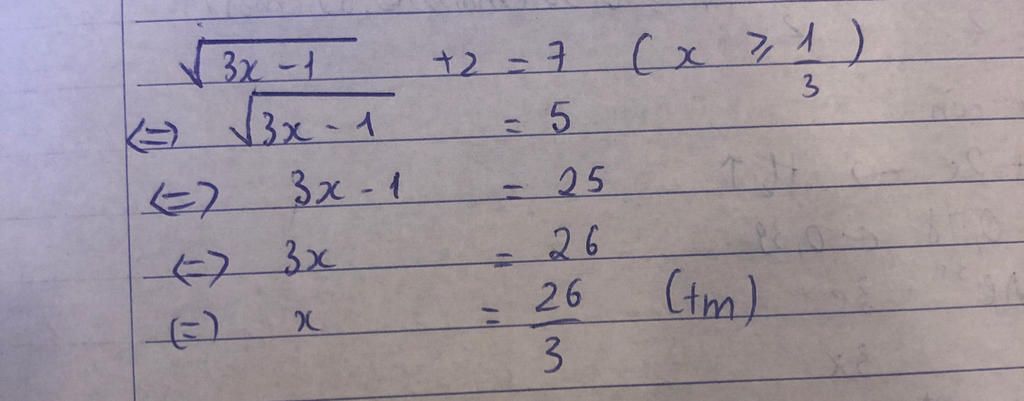 √(3x-1) +2 = 7 (x ⩾ 1/3)
<=> √(3x-1) = 5
<=> 3x-1 = 25
<=> 3x = 26
(=) x = 26/3 (tm)